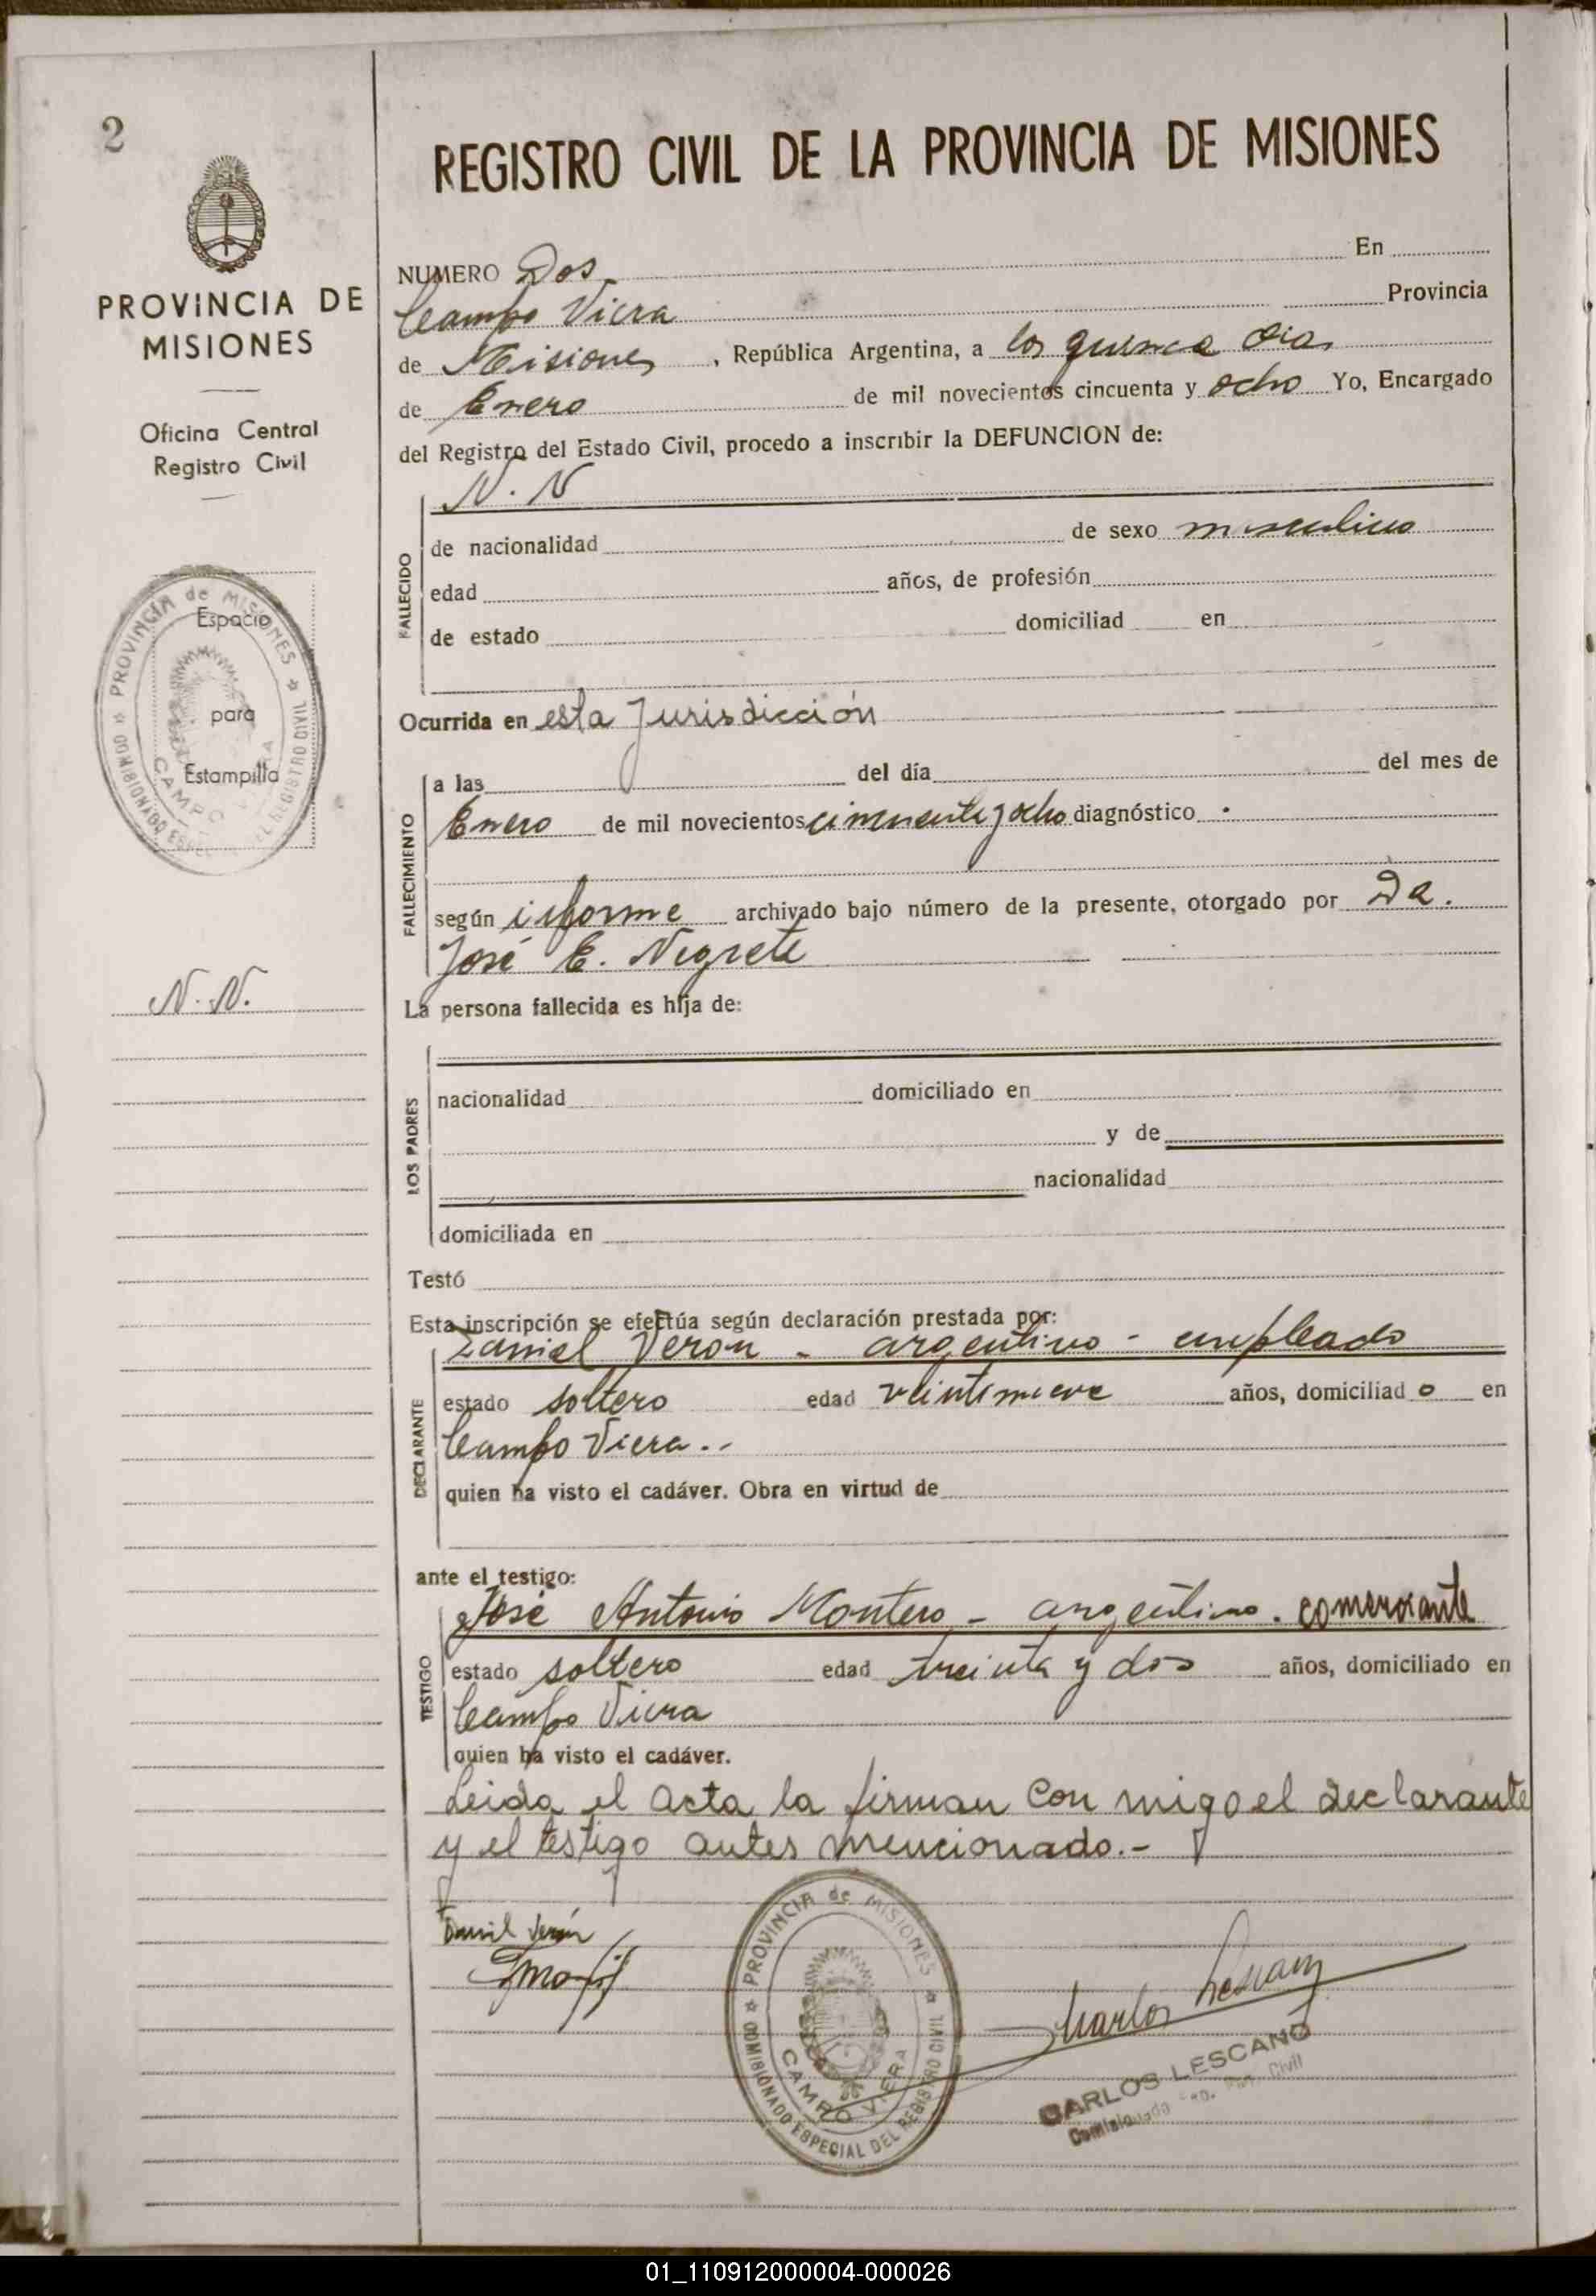 2
PROVINCIA DE
MISIONES
Oficina Central
Registro Civil
PROVINCIA de MISIONES
COMISIONADO
DEL REGISTRO CIVIL
CAMPO VIERA
Espacio
para
Estampilla
N. N.
REGISTRO CIVIL DE LA PROVINCIA DE MISIONES
NUMERO Dos En
Campo Viera Provincia
de Misiones, República Argentina, a los quince dias
de Enero de mil novecientos cincuenta y ocho Yo, Encargado
del Registro del Estado Civil, procedo a inscribir la DEFUNCION de:
FALLECIDO
N. N
de nacionalidad de sexo masculino
edad años, de profesión
de estado domiciliad en
Ocurrida en esta Jurisdicción
FALLECIMIENTO
a las del día del mes de
Enero de mil novecientos cincuenta y ocho diagnóstico
según informe archivado bajo número de la presente, otorgado por
José E. Negrete
La persona fallecida es hija de:
LOS PADRES
nacionalidad domiciliado en
y de
nacionalidad
domiciliada en
Testó
Esta inscripción se efectúa según declaración prestada por:
DECLARANTE
Daniel Veron - argentino - empleado
estado soltero edad veintinueve años, domiciliad o en
Campo Viera.-
quien ha visto el cadáver. Obra en virtud de
ante el testigo:
TESTIGO
José Antonio Montero - argentino. comerciante
estado soltero edad treinta y dos años, domiciliado en
Campo Viera
quien ha visto el cadáver.
Leida el acta la firman con migo el declarante
y el testigo antes mencionado.-
Daniel Verón
PROVINCIA de MISIONES
COMISIONADO ESPECIAL DEL REGISTRO CIVIL
CAMPO VIERA
Carlos Lescano
CARLOS LESCANO
Comisionado Civil
01_110912000004-000026